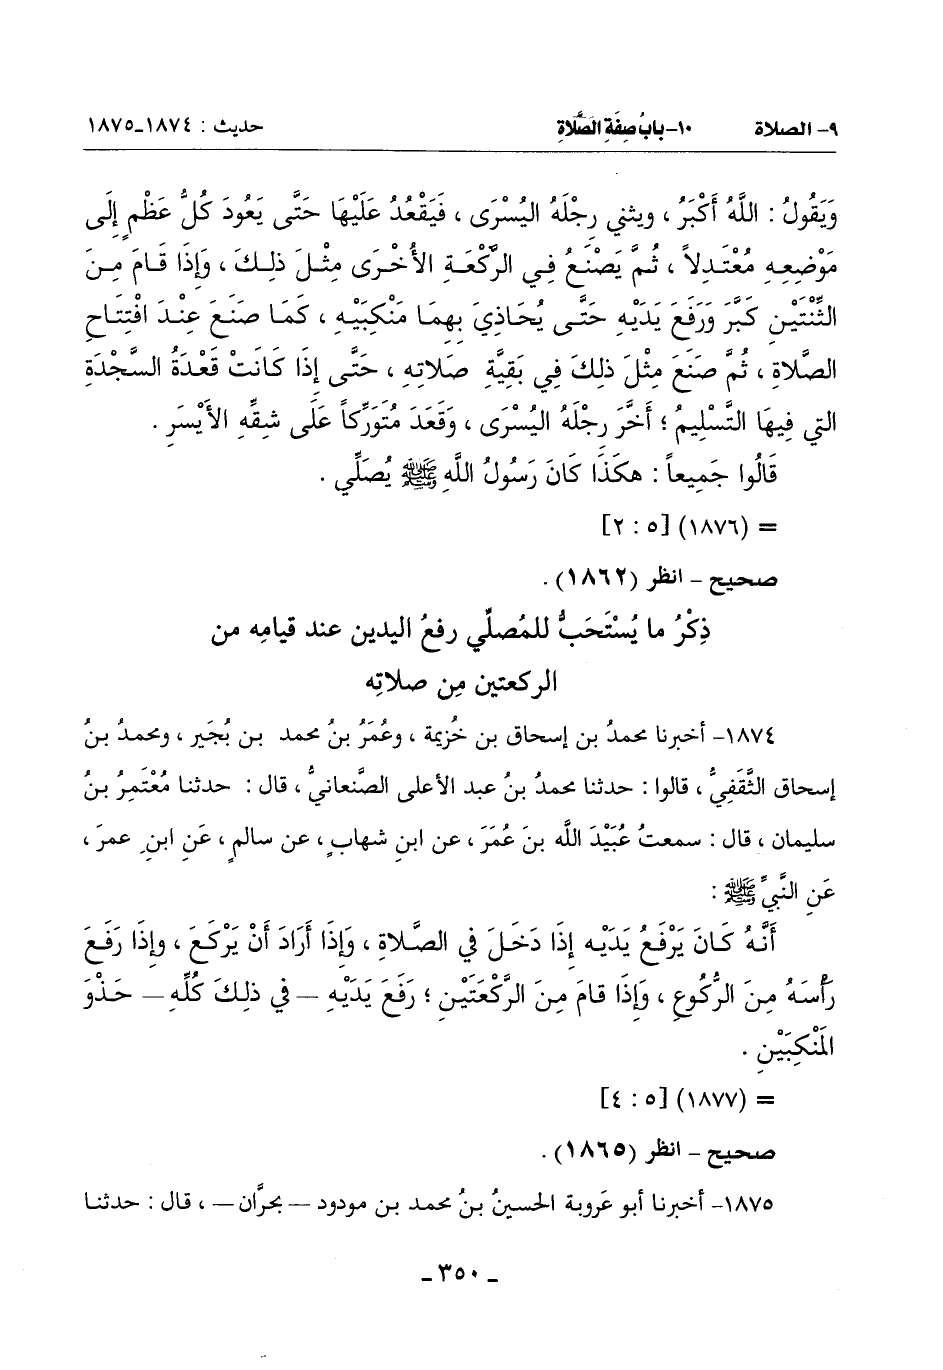 ٩- الصلاة ١٠-بابُ صِفَةِ الصَّلاةِ حديث : ١٨٧٤-١٨٧٥
وَيَقُولُ : اللَّهُ أَكْبَرُ ، ويثني رِجْلَهُ اليُسْرَى ، فَيَقْعُدُ عَلَيْهَا حَتَّى يَعُودَ كُلُّ عَظْمٍ إِلَى
مَوْضِعِهِ مُعْتَدِلاً ، ثُمَّ يَصْنَعُ فِي الرَّكْعَةِ الأُخْرَى مِثْلَ ذلِكَ ، وَإِذَا قَامَ مِنَ
الثِّنْتَيْنِ كَبَّرَ وَرَفَعَ يَدَيْهِ حَتَّى يُحَاذِيَ بِهِمَا مَنْكِبَيْهِ ، كَمَا صَنَعَ عِنْدَ افْتِتَاحِ
الصَّلاةِ ، ثُمَّ صَنَعَ مِثْلَ ذلِكَ فِي بَقِيَّةِ صَلاتِهِ ، حَتَّى إِذَا كَانَتْ قَعْدَةُ السَّجْدَةِ
التي فِيهَا التَّسْلِيمُ ؛ أَخَّرَ رِجْلَهُ اليُسْرَى ، وَقَعَدَ مُتَوَرِّكاً عَلَى شِقِّهِ الأَيْسَرِ .
قَالُوا جَمِيعاً : هكَذَا كَانَ رَسُولُ اللَّهِ ﷺ يُصَلِّي .
= (١٨٧٦) [٥ : ٢]
صحيح - انظر (١٨٦٢) .
ذِكْرُ ما يُسْتَحَبُّ للمُصلِّي رفعُ اليدين عند قيامِه من
الركعتين مِن صلاتِه
١٨٧٤- أخبرنا محمدُ بن إسحاق بن خُزيمة ، وعُمَرُ بنُ محمد بن بُجَير ، ومحمدُ بنُ
إسحاق الثَّقَفِيُّ ، قالوا : حدثنا محمدُ بنُ عبد الأعلى الصَّنعانيُّ ، قال : حدثنا مُعْتَمِرُ بنُ
سليمان ، قال : سمعتُ عُبَيْدَ الله بنَ عُمَرَ ، عن ابنِ شهابٍ ، عن سالمٍ ، عَنِ ابنِ عمرَ ،
عَنِ النَّبِيِّ ﷺ :
أَنَّهُ كَانَ يَرْفَعُ يَدَيْهِ إِذَا دَخَلَ فِي الصَّلاةِ ، وَإِذَا أَرَادَ أَنْ يَرْكَعَ ، وإِذا رَفَعَ
رَأْسَهُ مِنَ الرُّكُوعِ ، وَإِذَا قَامَ مِنَ الرَّكْعَتَيْنِ ؛ رَفَعَ يَدَيْهِ — في ذلِكَ كُلِّهِ — حَذْوَ
المَنْكِبَيْنِ .
= (١٨٧٧) [٥ : ٤]
صحيح - انظر (١٨٦٥) .
١٨٧٥- أخبرنا أبو عَروبة الحسينُ بنُ محمد بن مودود — بحرَّان — ، قال : حدثنا
- ٣٥٠ -